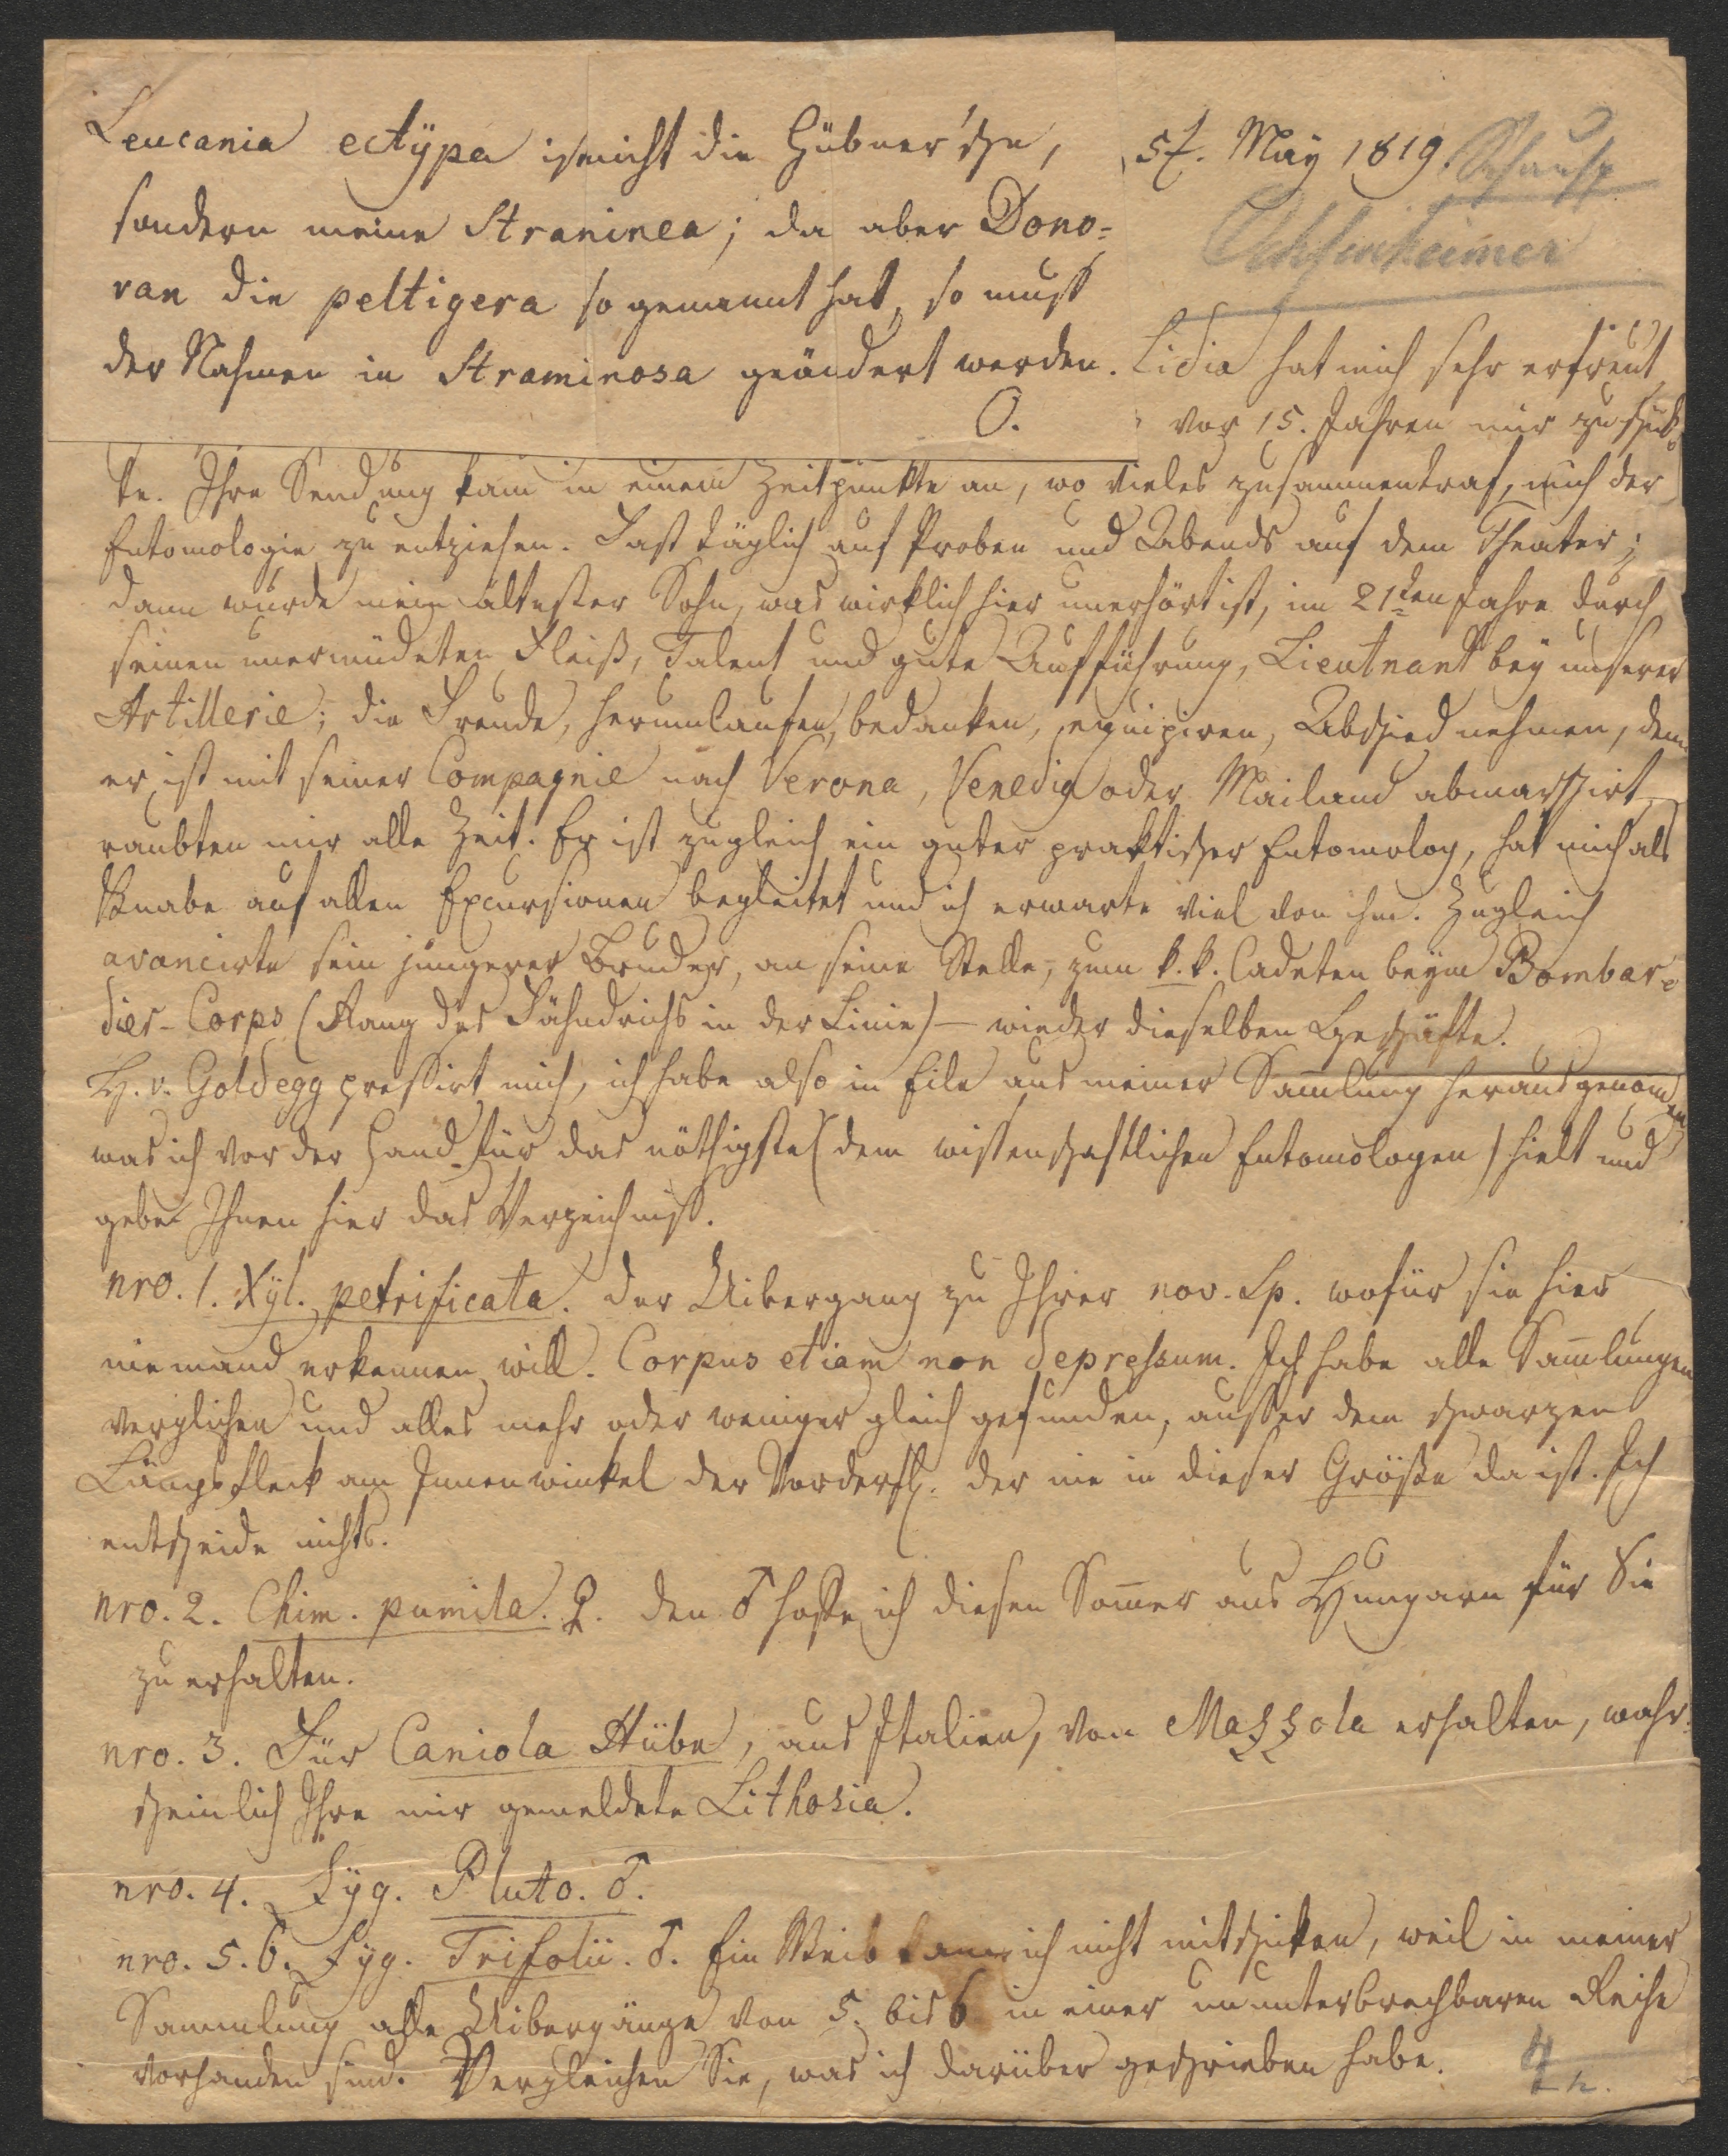 Leucania ectÿpa ist nicht die Hübner'sche,
sondern meine Straminea; da aber Dono=
van die peltigera so genannt hat, so muß
der Nahmen in Straminosa geändert werden.
O.
5t. Maÿ 1819.
Schausp
Ochsenheimer
Lidia hat mich sehr erfreut
vor 15. Jahren mir zuschik=
te. Ihre Sendung kam in einem Zeitpunkte an, wo vieles zusammentraf, mich der
Entomologie zu entziehen. Fast täglich auf Proben und Abends auf dem Theater;
dann wurde mein ältester Sohn, was wirklich hier unerhört ist, im 21sten Jahre durch
seinen unermüdeten Fleiß, Talent und gute Aufführung, Lieutnant beÿ unserer
Artillerie; die Freude, herumlaufen, bedanken, equipiren, Abschied nehmen, denn
er ist mit seiner Compagnie nach Verona, Venedig oder Mailand abmarschirt,
raubten mir alle Zeit. Er ist zugleich ein guter praktischer Entomolog, hat mich als
Knabe auf allen Excursionen begleitet und ich erwarte viel von ihm. Zugleich
avancirte sein jüngerer Bruder, an seine Stelle, zum k. k. Cadeten beÿm Bombar=
dier-Corps (Rang des Fähndrichs in der Linie) — wieder dieselben Geschäfte.
H. v. Goldegg pressirt mich, ich habe also in Eile aus meiner Samlung herausgenomen
was ich vor der Hand für das nöthigste (dem wissenschaftlichen Entomologen) hielt und
gebe Ihnen hier das Verzeichniß.
nro. 1. Xÿl. petrificata. Der Uibergang zu Ihrer nov. Sp. wofür sie hier
niemand erkennen will. Corpus etiam non depressum. Ich habe alle Samlungen
verglichen und alles mehr oder weniger gleich gefunden, ausser dem schwarzen
Längsfleck am Innenwinkel der Vorderfl. der nie in dieser Größe da ist. Ich
entscheide nichts.
nro. 2. Chim. pumila. ♀. den ♂ hoffe ich diesen Somer aus Hungarn für Sie
zu erhalten.
nro. 3. Für Caniola Hübn, aus Italien, von Mazzola erhalten, wahr=
scheinlich Ihre mir gemeldete Lithosia.
nro. 4. Zÿg. Pluto. ♂.
nro. 5. 6. Zÿg. Trifolii. ♂. Ein Weib kann ich nicht mitschiken, weil in meiner
Sammlung alle Uibergänge von 5. bis 6 in einer ununterbrechbaren Reihe
vorhanden sind. Vergleichen Sie, was ich darüber geschrieben habe.